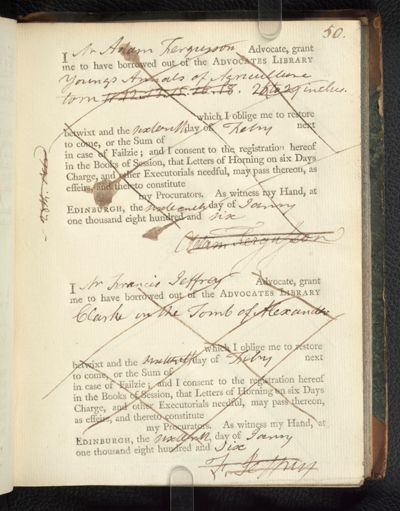 50.
I Mr Adam Fergusson Advocate, grant
me to have borrowed out of the ADVOCATES LIBRARY
Youngs Annals of Agriculture
tom
which I oblige me to restore
betwixt and the day of Febry next
to come, or the Sum of
in case of Failzie; and I consent to the registration hereof
in the Books of Session, that Letters of Horning on six Days
Charge, and other Executorials needful, may pass thereon, as
effeirs, and thereto constitute
my Procurators. As witness my Hand, at
EDINBURGH, the day of Janry
one thousand eight hundred and six
Adam Fergusson
I Mr Francis Jeffrey Advocate, grant
me to have borrowed out of the ADVOCATES LIBRARY
Clarke on the Tomb of Alexander
which I oblige me to restore
betwixt and the day of Febry next
to come, or the Sum of
in case of Failzie; and I consent to the registration hereof
in the Books of Session, that Letters of Horning on six Days
Charge, and other Executorials needful, may pass thereon,
as effeirs, and thereto constitute
my Procurators. As witness my Hand, at
EDINBURGH, the day of Janry
one thousand eight hundred and Six
F. Jeffrey